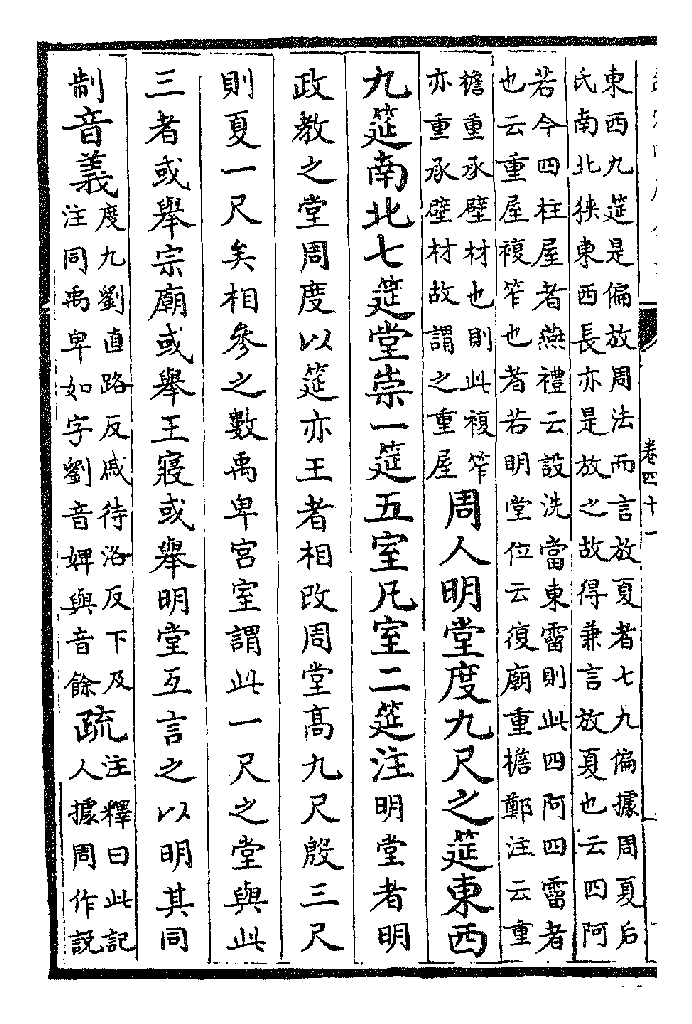 卷四十一
東西九筵是偏放周法而言放夏者七九偏據周夏后
氏南北狹東西長亦是放之故得兼言放夏也云四阿
若今四柱屋者燕禮云設洗當東霤則此四阿四霤者
也云重屋複笮也者若明堂位云復廟重檐鄭注云重
檐重承壁材也則此複笮
亦重承壁材故謂之重屋
周人明堂度九尺之筵東西
九筵南北七筵堂崇一筵五室凡室二筵注明堂者明
政教之堂周度以筵亦王者相改周堂高九尺殷三尺
則夏一尺矣相參之數禹卑宮室謂此一尺之堂與此
三者或舉宗廟或舉王寢或舉明堂互言之以明其同
制音義
度九劉直路反戚待洛反下及
注同禹卑如字劉音婢與音餘
疏
注釋曰此記
人據周作說